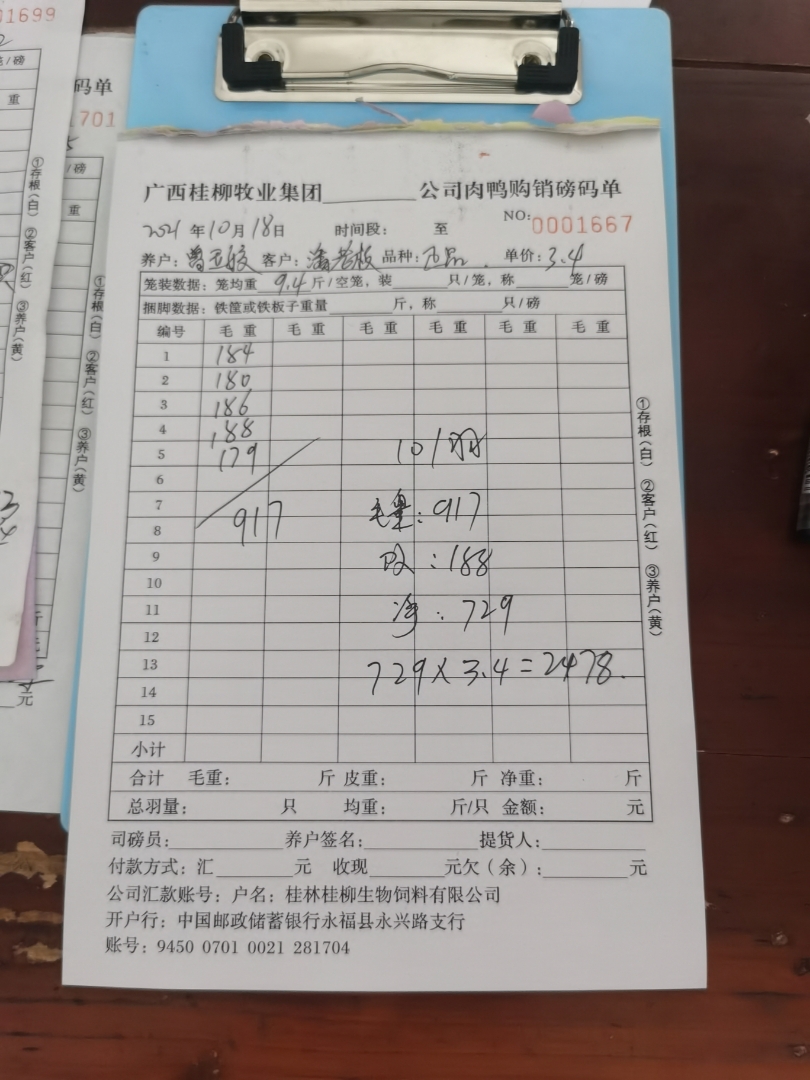 01699
码单
1701
/磅
重
①存根(白) ②客户(红) ③养户(黄)
①存根(白) ②客户(红) ③养户(黄)
元
广西桂柳牧业集团________公司肉鸭购销磅码单
2021年10月18日 时间段: 至 NO:0001667
养户: 客户:潘老板 品种:正品. 单价:3.4
笼装数据:笼均重 9.4 斤/空笼,装______只/笼,称______笼/磅
捆脚数据:铁筐或铁板子重量______斤,称______只/磅
编号 毛重 毛重 毛重 毛重 毛重 毛重
1 184
2 180
3 186
4 188
5 179 10/羽
6
7 毛重:917
8 917
9 :188
10
11 净:729
12
13 729×3.4=2478.
14
15
小计
合计 毛重: 斤 皮重: 斤 净重: 斤
总羽量: 只 均重: 斤/只 金额: 元
①存根(白) ②客户(红) ③养户(黄)
司磅员:________养户签名:________提货人:________
付款方式:汇______元 收现______元欠(余):______元
公司汇款账号:户名:桂林桂柳生物饲料有限公司
开户行:中国邮政储蓄银行永福县永兴路支行
账号:9450 0701 0021 281704